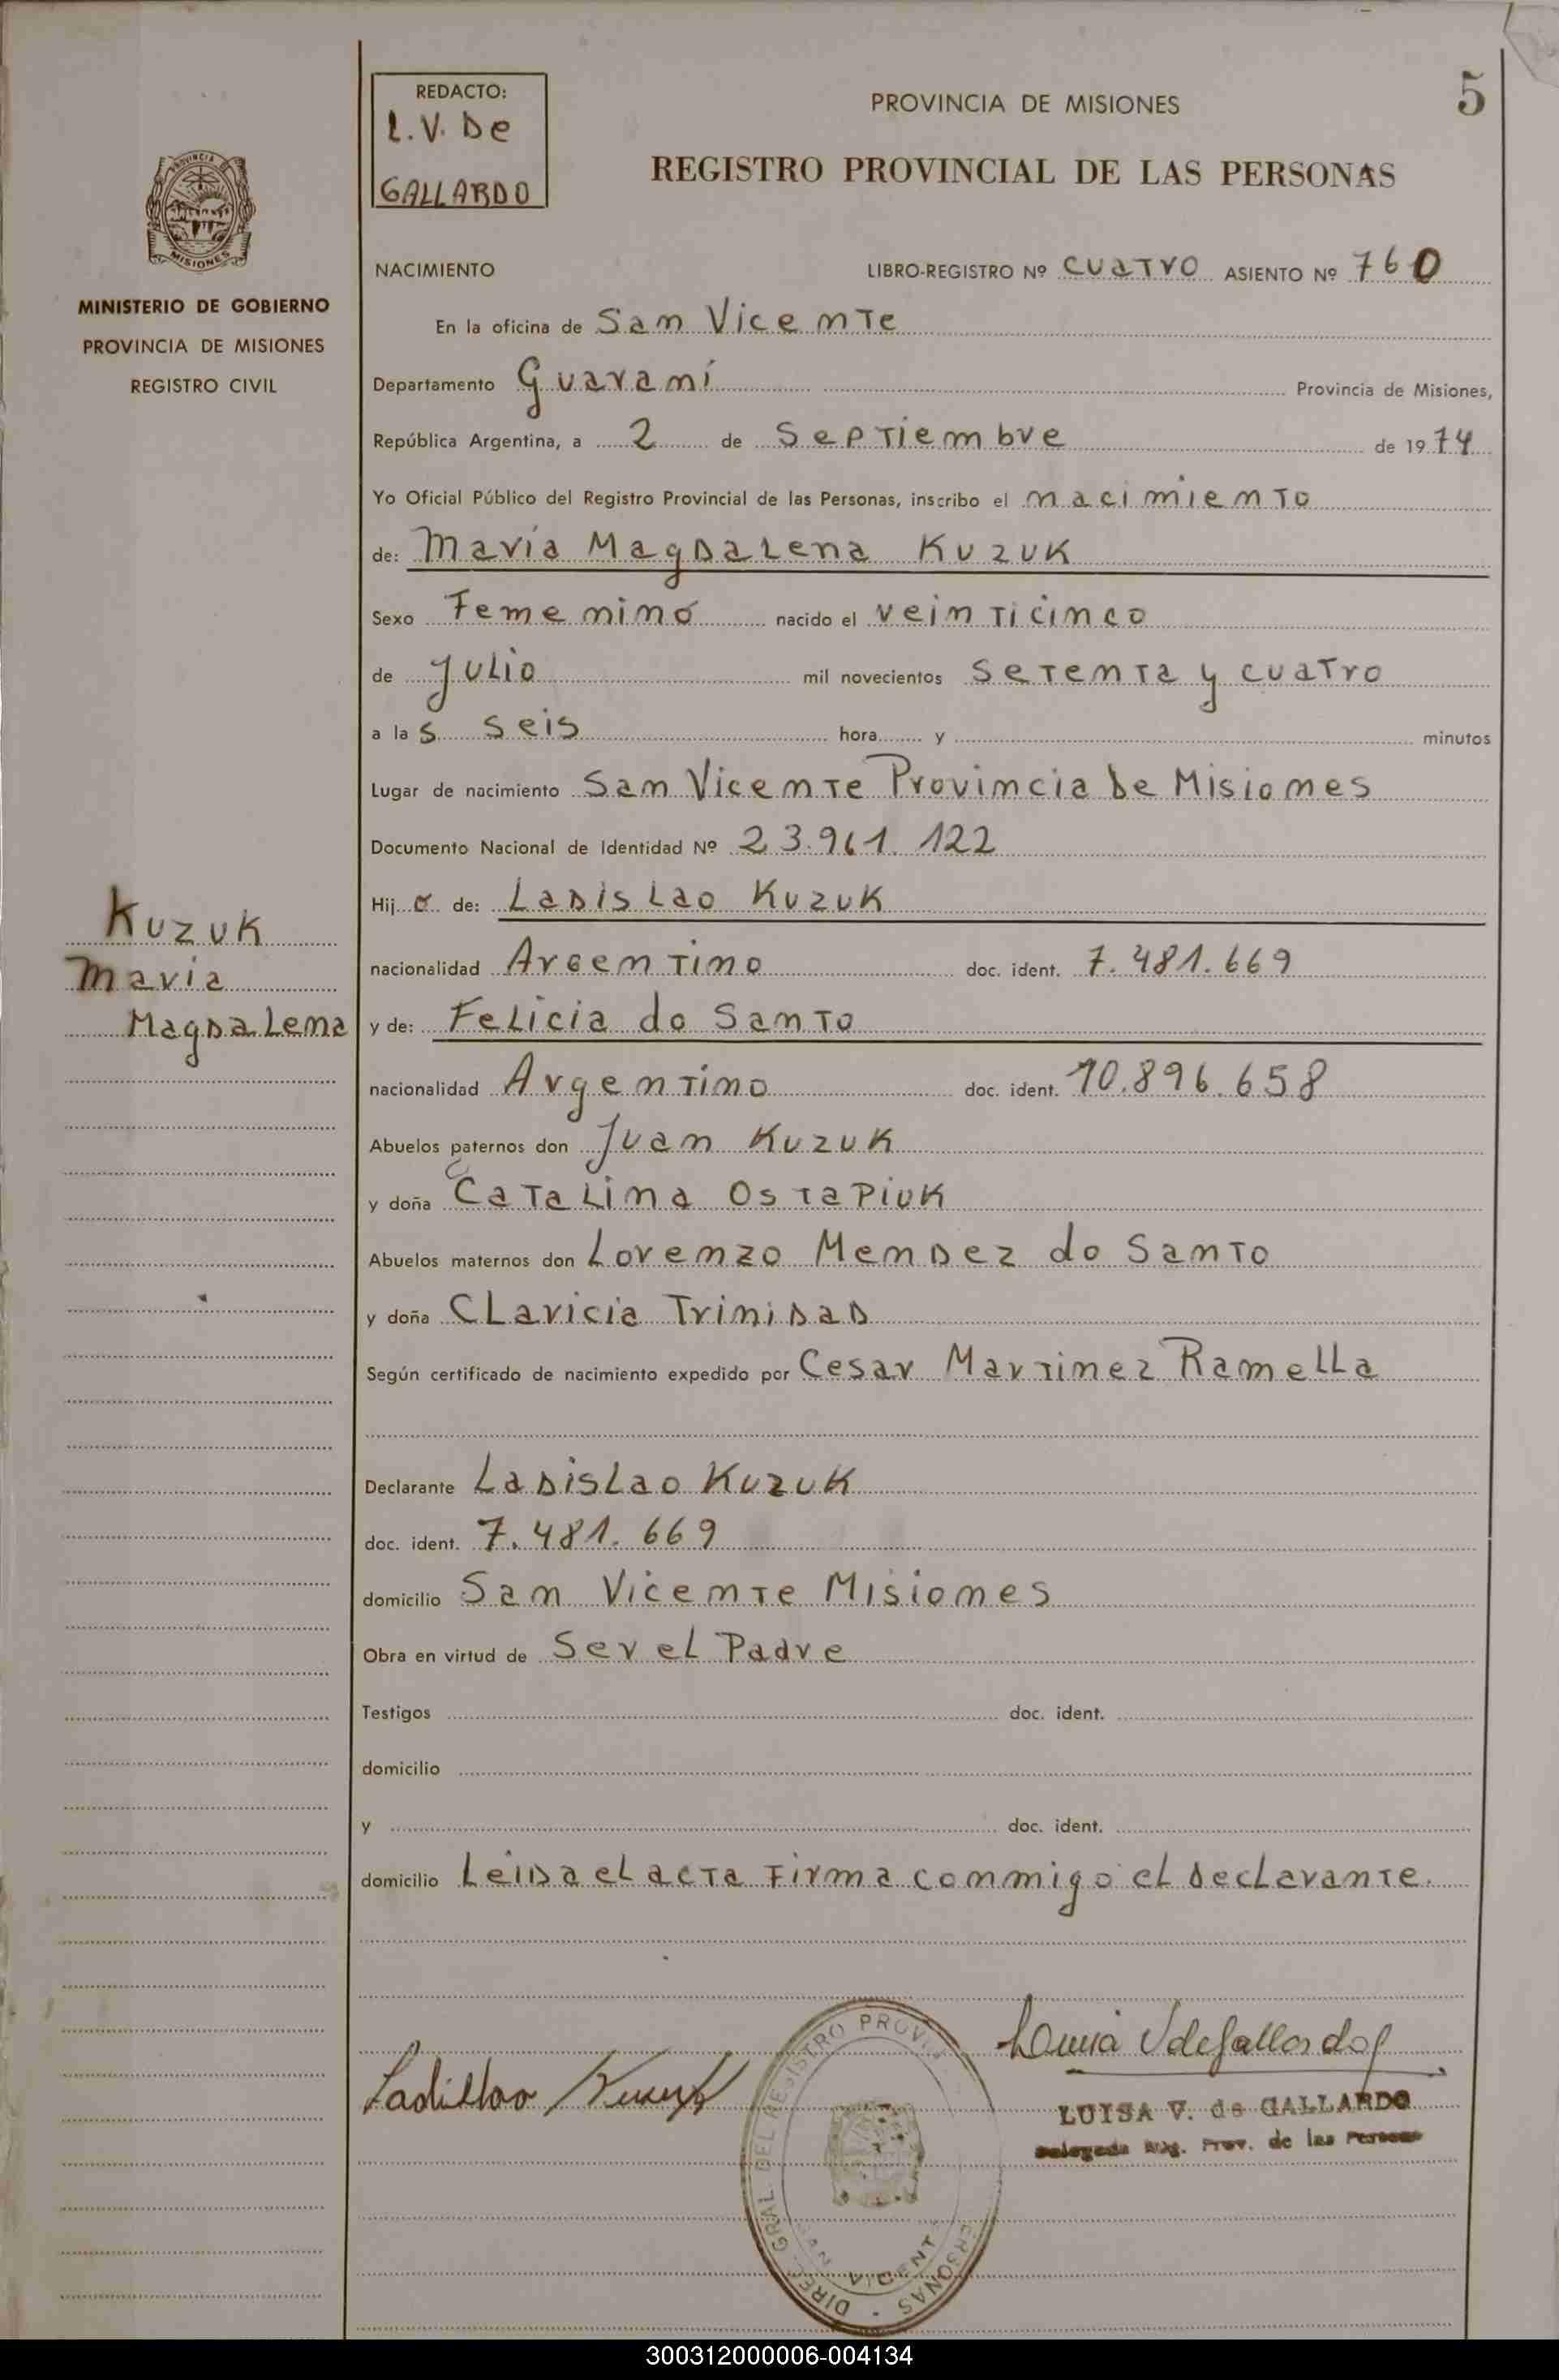 REDACTO:
L.V. De
GALLARDO
PROVINCIA DE MISIONES
5
REGISTRO PROVINCIAL DE LAS PERSONAS
PROVINCIA
MISIONES
MINISTERIO DE GOBIERNO
PROVINCIA DE MISIONES
REGISTRO CIVIL
NACIMIENTO LIBRO-REGISTRO Nº cuatro ASIENTO Nº 760
En la oficina de San Vicente
Departamento Guaraní Provincia de Misiones,
República Argentina, a 2 de Septiembre de 1974
Yo Oficial Público del Registro Provincial de las Personas, inscribo el nacimiento
de: María Magdalena Kuzuk
Sexo Femenino nacido el veinticinco
de Julio mil novecientos setenta y cuatro
a las seis hora y minutos
Lugar de nacimiento San Vicente Provincia de Misiones
Documento Nacional de Identidad Nº 23.961.122
Hija de: Ladislao Kuzuk
nacionalidad Argentino doc. ident. 7.481.669
y de: Felicia do Santo
nacionalidad Argentino doc. ident. 10.896.658
Abuelos paternos don Juan Kuzuk
y doña Catalina Ostapiuk
Abuelos maternos don Lorenzo Mendez do Santo
y doña Claricia Trinidad
Según certificado de nacimiento expedido por Cesar Martinez Ramella
Kuzuk
Maria
Magdalena
Declarante Ladislao Kuzuk
doc. ident. 7.481.669
domicilio San Vicente Misiones
Obra en virtud de Ser el Padre
Testigos doc. ident.
domicilio
y doc. ident.
domicilio Leida el acta firma conmigo el declarante.
Ladislao Kuzuk
Luisa V de Gallardo
LUISA V. de GALLARDO
Delegada Reg. Prov. de las Personas
DIREC. GRAL. DEL REGISTRO PROV. PERSONAS
SAN VICENTE
300312000006-004134